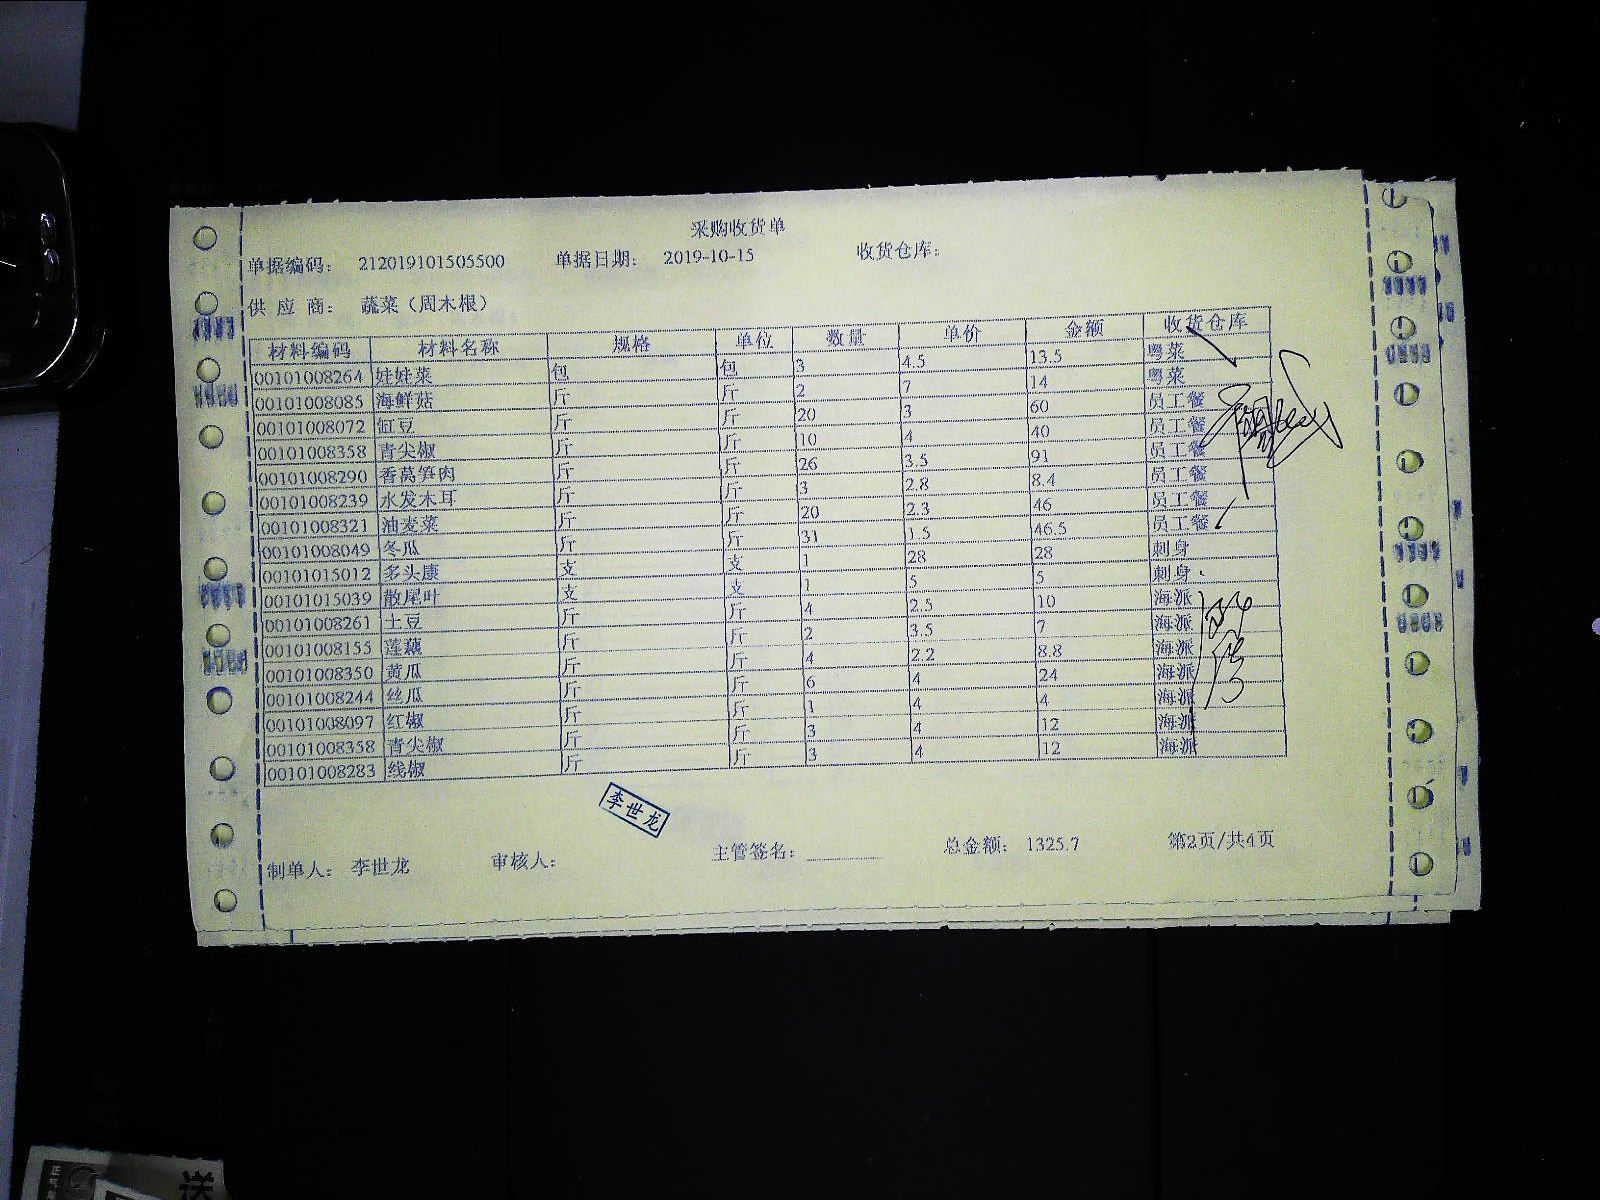 采购收货单
单据编码： 212019101505500 单据日期： 2019-10-15 收货仓库：
供 应 商： 蔬菜（周木根）
材料编码 材料名称 规格 单位 数量 单价 金额 收货仓库
00101008264 娃娃菜 包 包 3 4.5 13.5 粤菜
00101008085 海鲜菇 斤 斤 2 7 14 粤菜
00101008072 缸豆 斤 斤 20 3 60 员工餐
00101008358 青尖椒 斤 斤 10 4 40 员工餐
00101008290 香莴笋肉 斤 斤 26 3.5 91 员工餐
00101008239 水发木耳 斤 斤 3 2.8 8.4 员工餐
00101008321 油麦菜 斤 斤 20 2.3 46 员工餐
00101008049 冬瓜 斤 斤 31 1.5 46.5 员工餐
00101015012 多头康 支 支 1 28 28 刺身
00101015039 散尾叶 支 支 1 5 5 刺身
00101008261 土豆 斤 斤 4 2.5 10 海派
00101008155 莲藕 斤 斤 2 3.5 7 海派
00101008350 黄瓜 斤 斤 4 2.2 8.8 海派
00101008244 丝瓜 斤 斤 6 4 24 海派
00101008097 红椒 斤 斤 1 4 4 海派
00101008358 青尖椒 斤 斤 3 4 12 海派
00101008283 线椒 斤 斤 3 4 12 海派
李世龙
制单人： 李世龙 审核人： 主管签名： 总金额： 1325.7 第2页/共4页
送